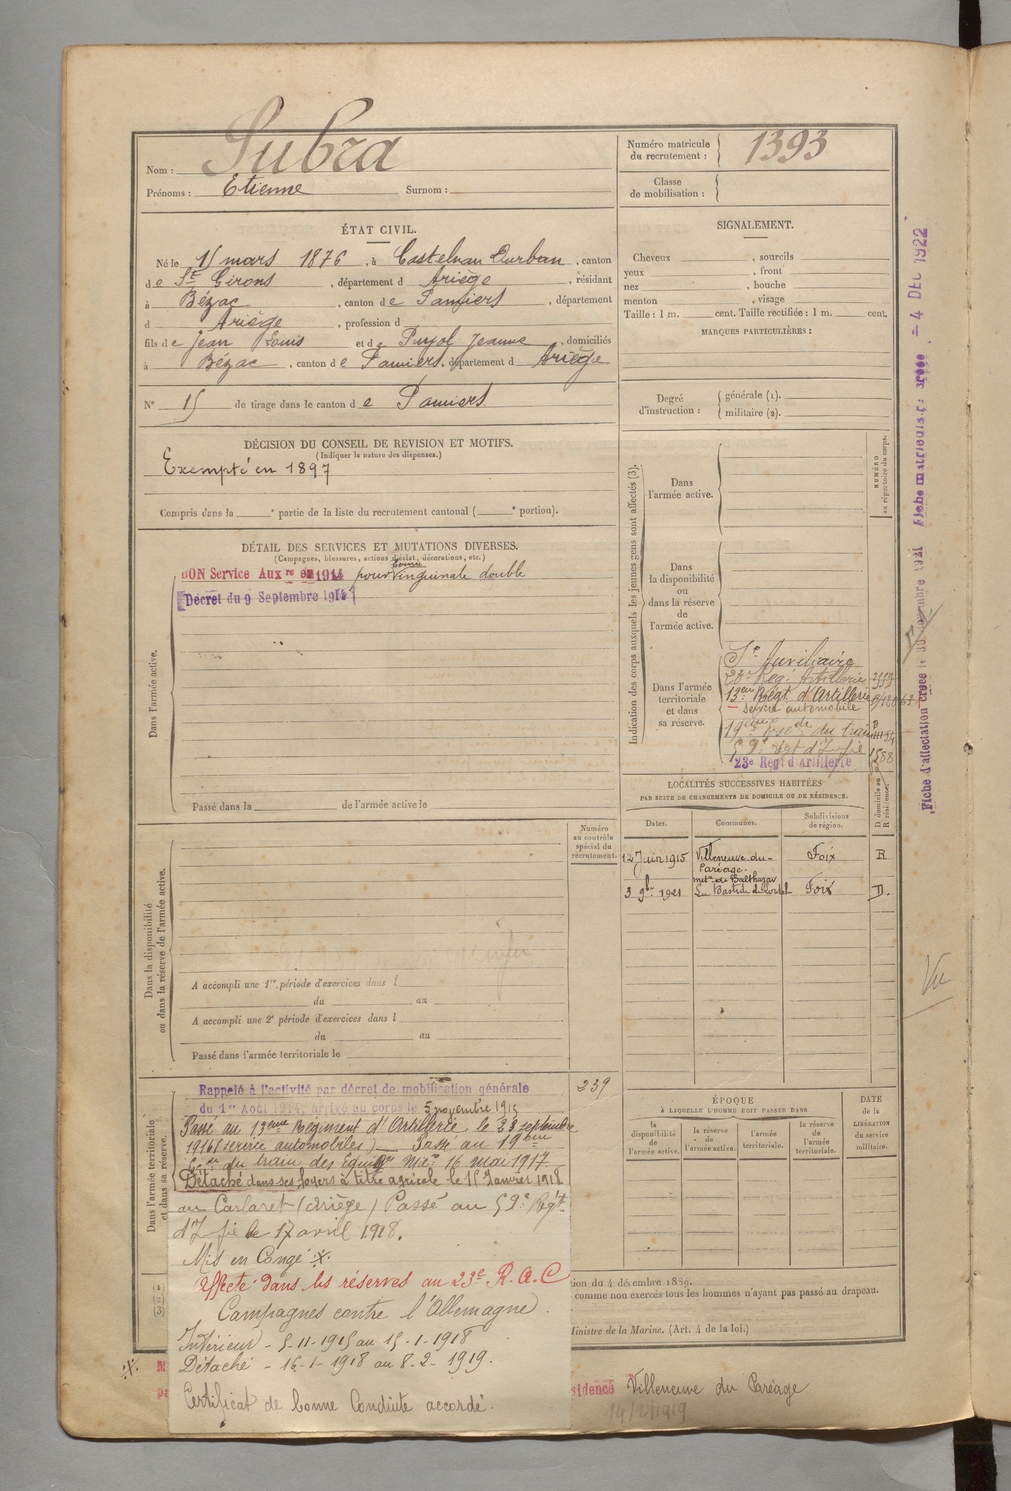 Nom : Subra
Prénoms : Etienne Surnom :
Numéro matricule du recrutement : 1393
Classe de mobilisation :
ÉTAT CIVIL.
Né le 15 mars 1876, à Castelnau Durban, canton
de St Girons, département d Ariège, résidant
à Bézac, canton de Pamiers, département
d Ariège, profession d
fils de Jean Louis et de Pujol Jeanne, domiciliés
à Bézac, canton de Pamiers, département d Ariège
N° 15 de tirage dans le canton de Pamiers
SIGNALEMENT.
Cheveux , sourcils
yeux , front
nez , bouche
menton , visage
Taille : 1 m. cent. Taille rectifiée : 1 m. cent.
MARQUES PARTICULIÈRES :
Degré d'instruction : générale (1).
militaire (2).
DÉCISION DU CONSEIL DE REVISION ET MOTIFS.
(Indiquer la nature des dispenses.)
Exempté en 1897
Compris dans la e partie de la liste du recrutement cantonal ( e portion).
DÉTAIL DES SERVICES ET MUTATIONS DIVERSES.
(Campagnes, blessures, actions d'éclat, décorations, etc.)
BON Service Auxre en 1914 pour hernie inguinale double
Décret du 9 Septembre 1914
Dans l'armée active.
Passé dans la de l'armée active le
Indication des corps auxquels les jeunes gens sont affectés (3).
NUMÉRO au répertoire du corps.
Dans l'armée active.
Dans la disponibilité ou dans la réserve de l'armée active.
Dans l'armée territoriale et dans sa réserve.
Sce Auxiliaire
23e Rég. Artillerie
13eme Régt. d'Artillerie
Service automobile
19eme esc. du train
59e régt d'Infie 1588
23e Regt d'Artillerie
LOCALITÉS SUCCESSIVES HABITÉES
PAR SUITE DE CHANGEMENTS DE DOMICILE OU DE RÉSIDENCE.
Dates. Communes. Subdivisions de région. D domicile ou R résidence.
12 Juin 1915 Villeneuve-du-Paréage. Foix R
3 9bre 1921 La Bastide de Lordat Foix D.
Numéro au contrôle spécial du recrutement.
Dans la disponibilité ou dans la réserve de l'armée active.
A accompli une 1re période d'exercices dans l
du au
A accompli une 2e période d'exercices dans l
du au
Passé dans l'armée territoriale le
Dans l'armée territoriale et dans sa réserve.
239
Rappelé à l'activité par décret de mobilisation générale
du 1er Août 1914, arrivé au corps le 5 novembre 1915
Passé au 13eme Régiment d'Artillerie le 23 septembre
1916 (service automobiles) Passé au 19eme
du train des Équip. Mre 16 mai 1917
Détaché dans ses foyers à titre agricole le 15 Janvier 1918
au Carlaret (Ariège) Passé au 59e Régt
d'Infie le 17 avril 1918.
Mis en Congé
Affecté dans les réserves au 23e R.A.C
Campagnes contre l'Allemagne.
Intérieur - 5-11-1915 au 15-1-1918
Détaché - 16-1-1918 au 8-2-1919.
Certificat de bonne Conduite accordé.
ÉPOQUE
À LAQUELLE L'HOMME DOIT PASSER DANS
la disponibilité de l'armée active.
la réserve de l'armée active.
l'armée territoriale.
la réserve de l'armée territoriale.
DATE de la LIBÉRATION du service militaire.
tion du 4 décembre 1889.
comme non exercés tous les hommes n'ayant pas passé au drapeau.
Ministre de la Marine. (Art. 4 de la loi.)
(1)
(2)
(3)
sidence Villeneuve du Paréage
14/2/1919
Vu
Fiche d'affectation créée le 30
Fiche matricule
- 4 DEC 1922